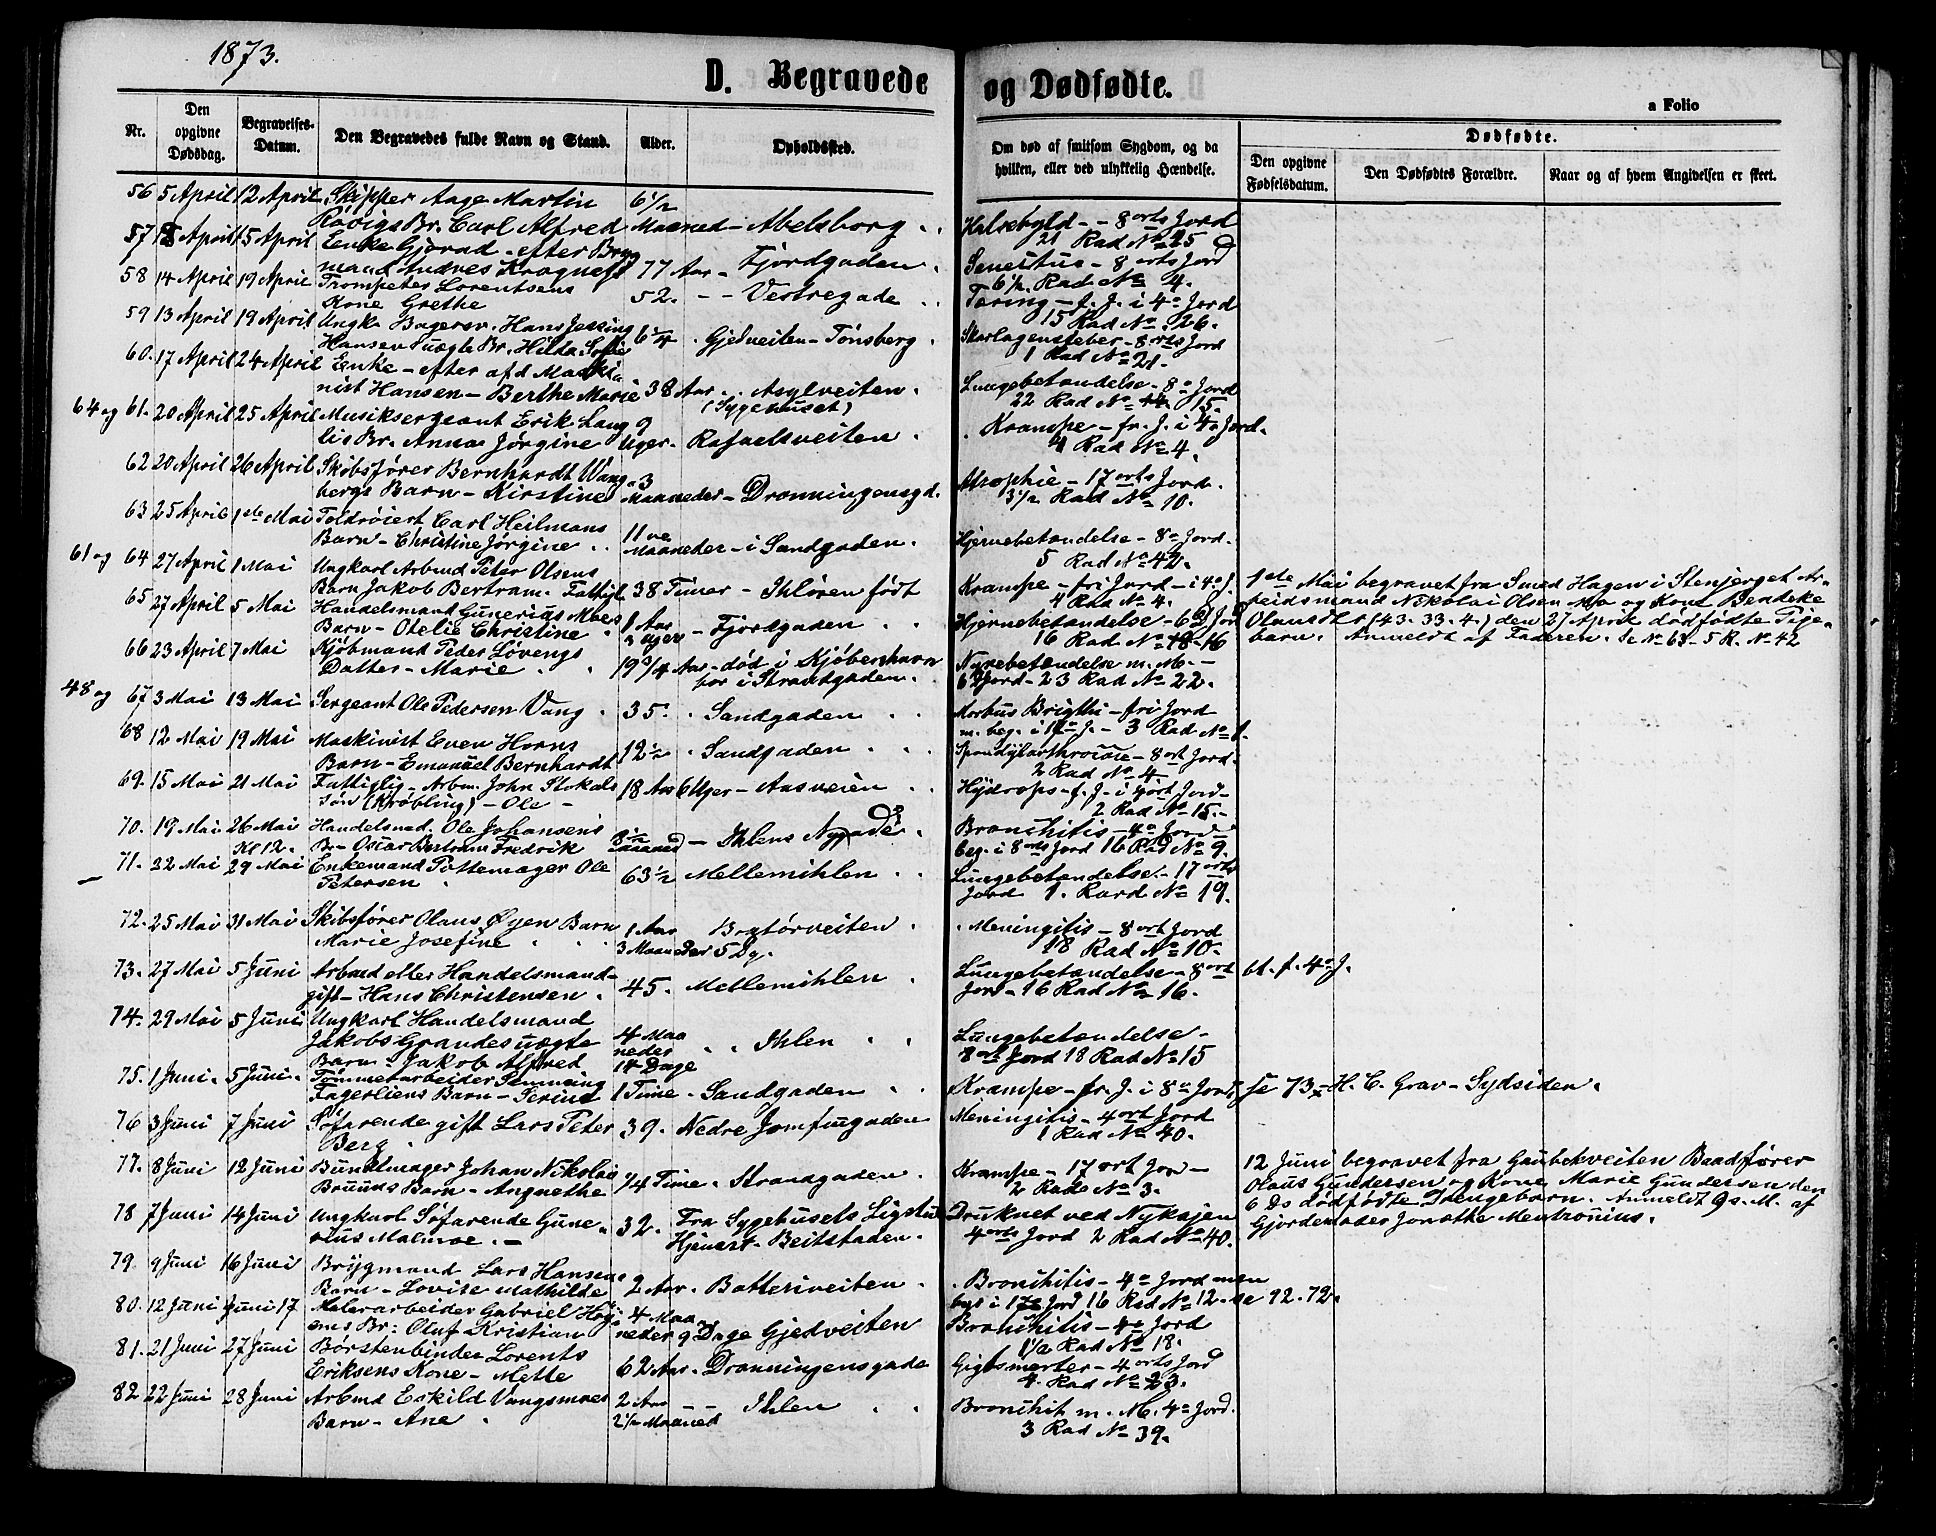 1873.
D. Begravede og Dødfødte.
a Folio
Nr.
Den opgivne Dødsdag.
Begravelses-Datum.
Den Begravedes fulde Navn og Stand.
Alder.
Opholdssted.
Om død af smitsom Sygdom, og da hvilken, eller ved ulykkelig Hændelse.
Dødfødte.
Den opgivne Fødselsdatum.
Den Dødfødtes Forældre.
Naar og af hvem Angivelsen er skeet.
56 5 April 12 April Skipper Aage Martin 6 1/2
Røvigs Br. Carl Alfred Maaned - Abelsborg Halsebyld - 8 orts Jord
21 Rad No 25
57 April 15 April Enke Gjørad - efter Bryg
mand Andres Kragnefs 77 Aar - Fjordgaden Senectus - 8 orts Jord
6 1/2 Rad No 4.
58 14 April 19 April Trompeter Lorentsens
Kone Grethe 52. - - Vestregade Tæring - f. J. i 4 o Jord
15 Rad No 26.
59 13 April 19 April Ungk. Bagersv. Hans Jessing
Hansen uægte Br. Hilda Sofie 6 1/4 Gjedveiten - Tønsberg Skarlagensfeber - 8 orts Jord
1 Rad No 21.
60. 17 April 24 April Enke - efter afd Maski
nist Hansen - Berthe Marie 38 Aar Asylveiten Lungebetændelse - 8 o Jord
(Sygehuset) 22 Rad No 15.
64 og 61. 20 April 25 April Musiksergeant Erik Lang 9
lis Br. Anna Jørgine Uger. Rafaelsveiten Krampe - fr. J. i 4 o Jord.
4 Rad No 4.
62 20 April 26 April Skibsfører Bernhardt Wang 3
bergs Barn - Kirstine Maaneder - Dronningensgd. Atrophie - 17 orts Jord.
3 1/2 Rad No 10.
63 25 April 1ste Mai Toldrøiert Carl Heilmans
Barn - Christine Jørgine 11 ve Maaneder - i Sandgaden. Hjernebetændelse - 8 o Jord.
5 Rad No 42.
61 og 64 27 April 1 Mai Ungkarl Arbmd Peter Olsens
Barn Jakob Bertram. Fattigl. 38 Timer - Ihløren født Krampe - fri Jord - i 4 o J.
4 Rad No 4.
1ste Mai begravet fra Smed Hagen i Stenberget Ar-
beidsmand Nikolai Olsen Mo og Kone Bendeke
Olausdtr (43. 33. 4.) den 27 April dødfødte Pige-
barn. Anmeldt af Faderen. Se No 63. 5 R. No 42
65 27 April 5 Mai Handelsmand Gunerius Moers
Barn - Otelie Christine 1 Aar 3 Uger - Fjordgaden Hjernebetændelse - 6 D Jord
16 Rad No 18 16
66 23 April 7 Mai Kjøbmand Peder Løvengs
Datter - Marie 19 3/4 Aar - død i Kjøbenhavn Nyrebetændelse m. M. -
bor i Strandgaden. 6 Jord - 23 Rad No 22.
48 og 67 3 Mai 13 Mai Sergeant Ole Pedersen Vang 35. Sandgaden Morbus Brigthi - fri Jord
m. beg. i 17 J. - 3 Rad No 1.
68 12 Mai 19 Mai Maskinist Even Horns
Barn - Emanuel Bernhardt 12 1/2 Sandgaden 8 ort Jord.
2 Rad No 4
69. 15 Mai 21 Mai Fattiglig - Arbm. John Stokals
søn (Krøbling) - Ole - 18 Aar 6 Uger - Aasveien Hydrops - f. J. i ort Jord -
2 Rad No 15. -
70. 19 Mai 26 Mai Handelsmd. Ole Johansens
Kl 12. Br. - Oscar Bertram Fredrik 8 1/2 Maaned - Ihlens Nygade. Bronchitis - 4 o Jord -
beg. i 8 orts Jord 16 Rad No 9.
71. 22 Mai 29 Mai Enkemand Pottemager Ole
Petersen 63 1/2 Mellemihlen Lungebetændelse - 17 orts
Jord 1. Rard No 19.
72. 25 Mai 31 Mai Skibsfører Olaus Øyen Barn
Marie Josefine 1 Aar 3 Maaneder 5 Dg. Bratørveiten Meningitis - 8 ort Jord
18 Rad No 10.
73. 27 Mai 5 Juni Arbmd eller Handelsmand -
gift - Hans Christensen 45. Mellemihlen Lungebetændelse - 8 ort bl. f. 4 o J.
Jord - 16 Rad No 16.
74. 29 Mai 5 Juni Ungkarl Handelsmand
Jakobs Grandes uægte 4 Maa neder Ihlen Lungebetændelse -
Barn - Jakob Alfred 14 Dage 8 ort Jord 18 Rad No 15
75. 1 Juni. 5 Juni. Tømmerarbeider Semming
Fagerliens Barn - Serine 1 Time - Sandgaden Krampe - fr. J. i 8 o Jord, se 73 - H. C. Grav - Sydsiden.
76 3 Juni 7 Juni Søfarende gift Lars Peter 39. Nedre Jomfrugaden Meningitis - 4 ort Jord
Berg. 1 Rad No 40.
77. 8 Juni 12 Juni Buntmager Johan Nikolai
Bruuds Barn - Angnethe 1/4 Time. Strandgaden Krampe - 17 ort Jor -
2 Rad No 3.
12 Juni begravet fra Gaubekveiten Baadfører
Olaus Gundersen og Kone Marie Gundersen den
6 Ds dødfødte Drengebarn. Anmeldt 9 s. M. af
Gjordemoder Jonathe Mentronius.
78 7 Juni 14 Juni Ungkarl Søfarende Gune -
rius Malmoe. - 32. Fra Sygehusets Ligstue Druknet ved Nyksjen
Hjemst. Beitstaden. 4 orts Jord 2 Rad No 40.
79. 9 Juni 16 Juni Brygmand Lars Hansens
Barn - Lovise Mathilde 2 Aar. Batteriveiten Bronchitis - 4 o Jord men
begr i 17 Jord 16 Rad No 12. se 92. 72.
80. 12 Juni Juni 17 Malerarbeider Gabriel Høg
ens Br: Oluf Kristian 4 Maa neder 9 Dage Gjedveiten Bronchitis - 4 o Jord
1 1/2 Rad No 18.
81. 21 Juni 27 Juni Børstenbinder Lorents
Eriksens Kone - Mette 62 Aar. Dronningensgade Gigtsmerter - 4 orts Jord
4. Rad No 23.
82 22 Juni 28 Juni Arbmd Eskild Vangsmoes
Barn - Ane 2 Aar 2 1/2 Maaned - - Ihlen Bronchit m. M. 4 o Jord.
3 Rad No 39.